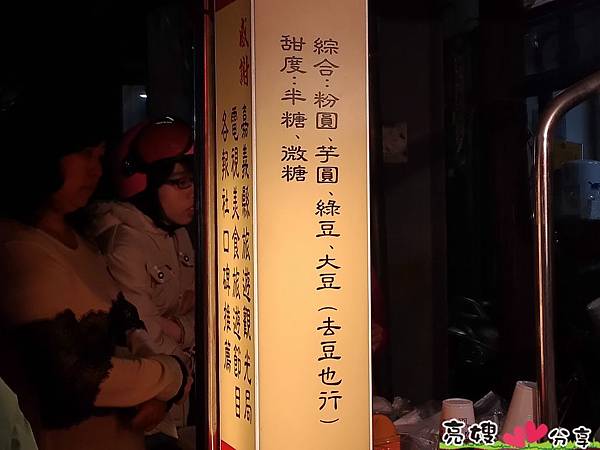 綜合：粉圓、芋圓、綠豆、大豆（去豆也行）
甜度：半糖、微糖
感謝
嘉義縣旅遊觀光局
電視美食旅遊節目
各報社口碑推薦
亮嫂
分享